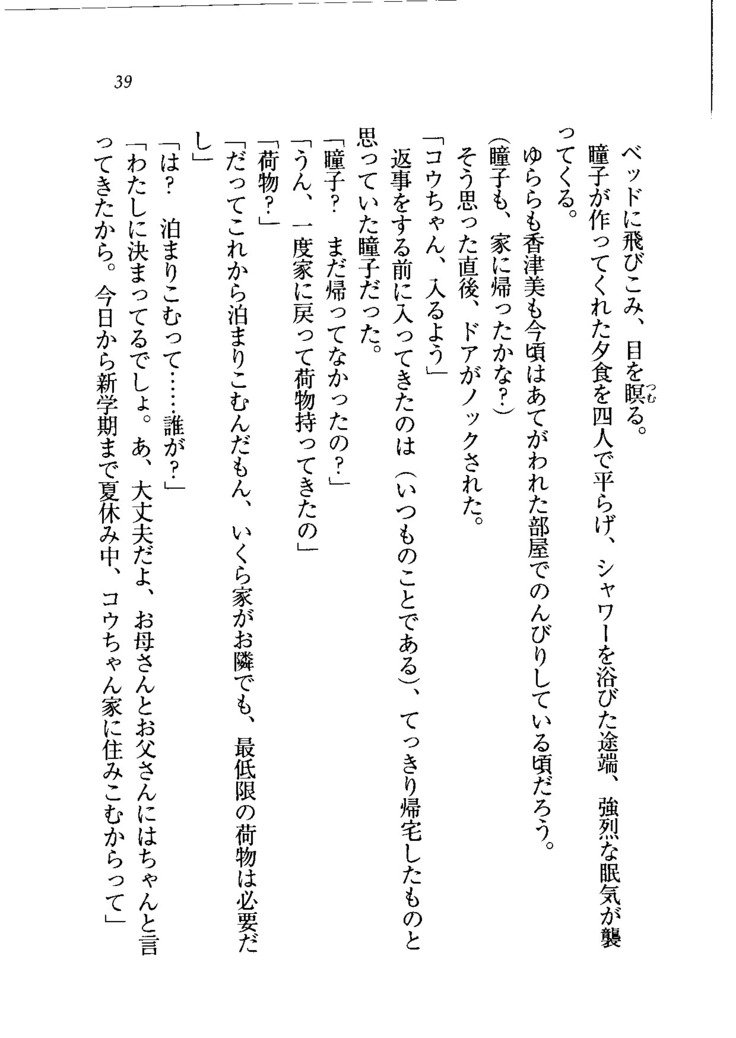 39
ベッドに飛びこみ、目を瞑る。
つむ
瞳子が作ってくれた夕食を四人で平らげ、シャワーを浴びた途端、強烈な眠気が襲
ってくる。
ゆららも香津美も今頃はあてがわれた部屋でのんびりしている頃だろう。
(瞳子も、家に帰ったかな?)
そう思った直後、ドアがノックされた。
「コウちゃん、入るよう」
返事をする前に入ってきたのは(いつものことである)、てっきり帰宅したものと
思っていた瞳子だった。
「瞳子? まだ帰ってなかったの?」
「うん、一度家に戻って荷物持ってきたの」
「荷物?」
「だってこれから泊まりこむんだもん、いくら家がお隣でも、最低限の荷物は必要だ
し」
「は? 泊まりこむって……誰が?」
「わたしに決まってるでしょ。あ、大丈夫だよ、お母さんとお父さんにはちゃんと言
ってきたから。今日から新学期まで夏休み中、コウちゃん家に住みこむからって」